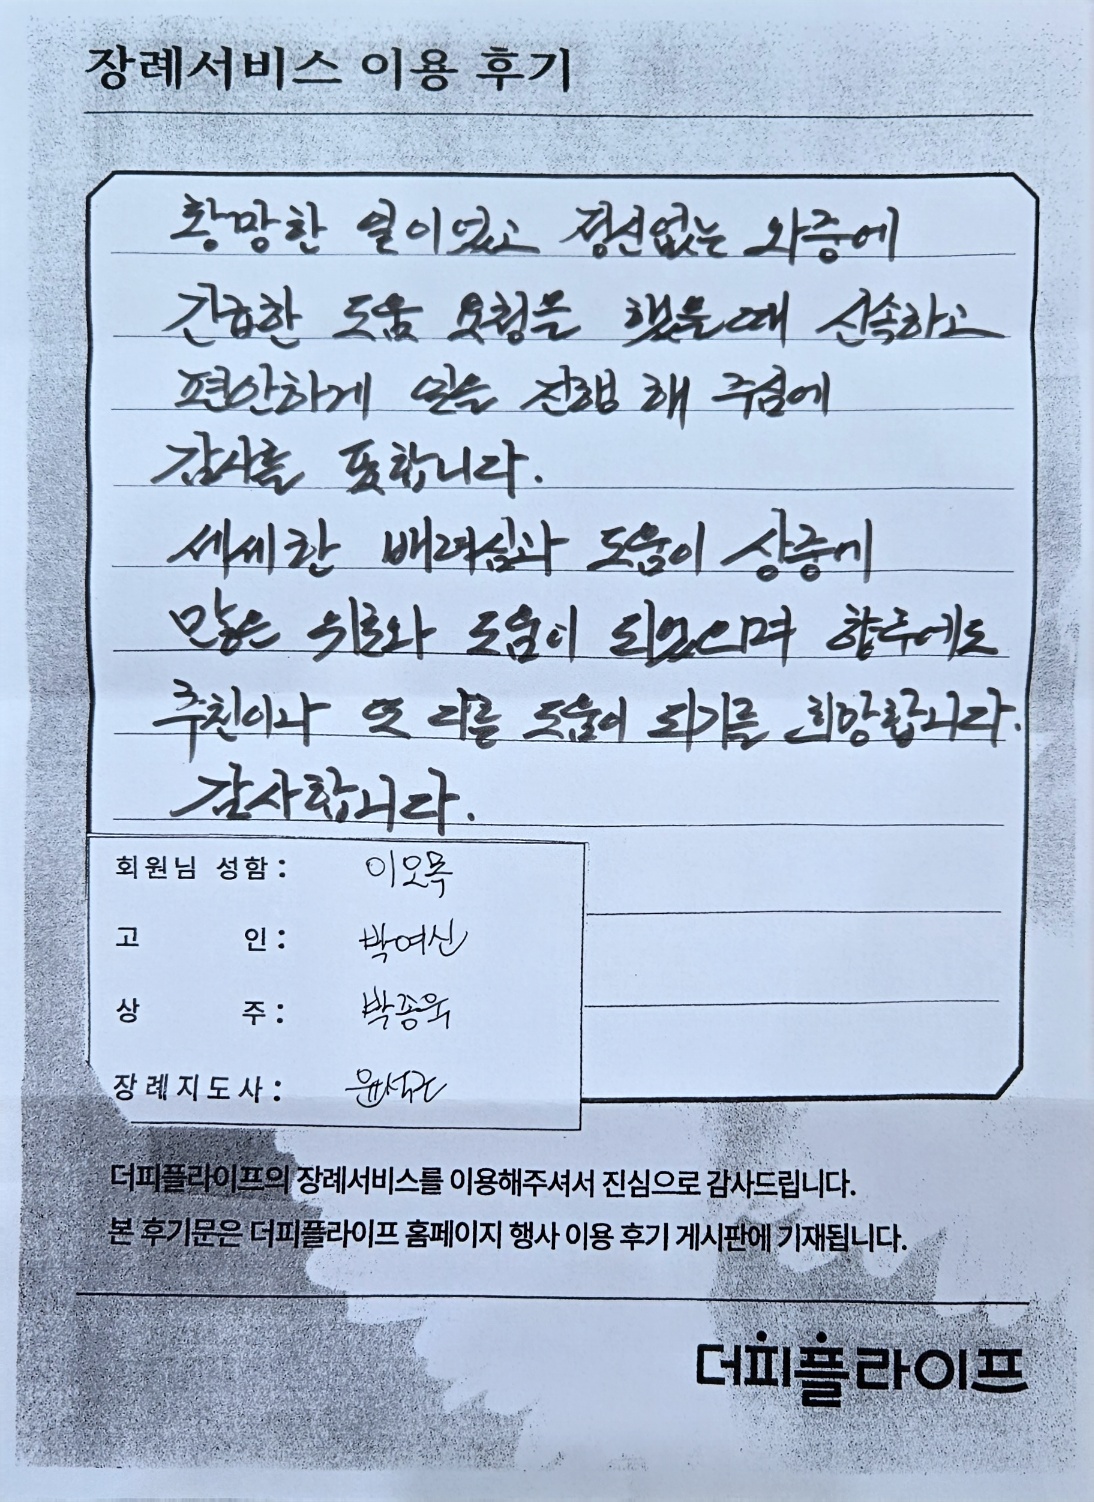 장례서비스 이용 후기
황망한 일이었고 정신없는 와중에
간급한 도움 요청을 했을때 신속하고
편안하게 일을 진행 해 주심에
감사를 표합니다.
세세한 배려심과 도움이 상중에
많은 위로와 도움이 되었으며 향후에도
추천이나 또 다른 도움이 되기를 희망합니다.
감사합니다.
회원님 성함: 이오목
고 인: 박여신
상 주: 박종욱
장례지도사:
더피플라이프의 장례서비스를 이용해주셔서 진심으로 감사드립니다.
본 후기문은 더피플라이프 홈페이지 행사 이용 후기 게시판에 기재됩니다.
더피플라이프